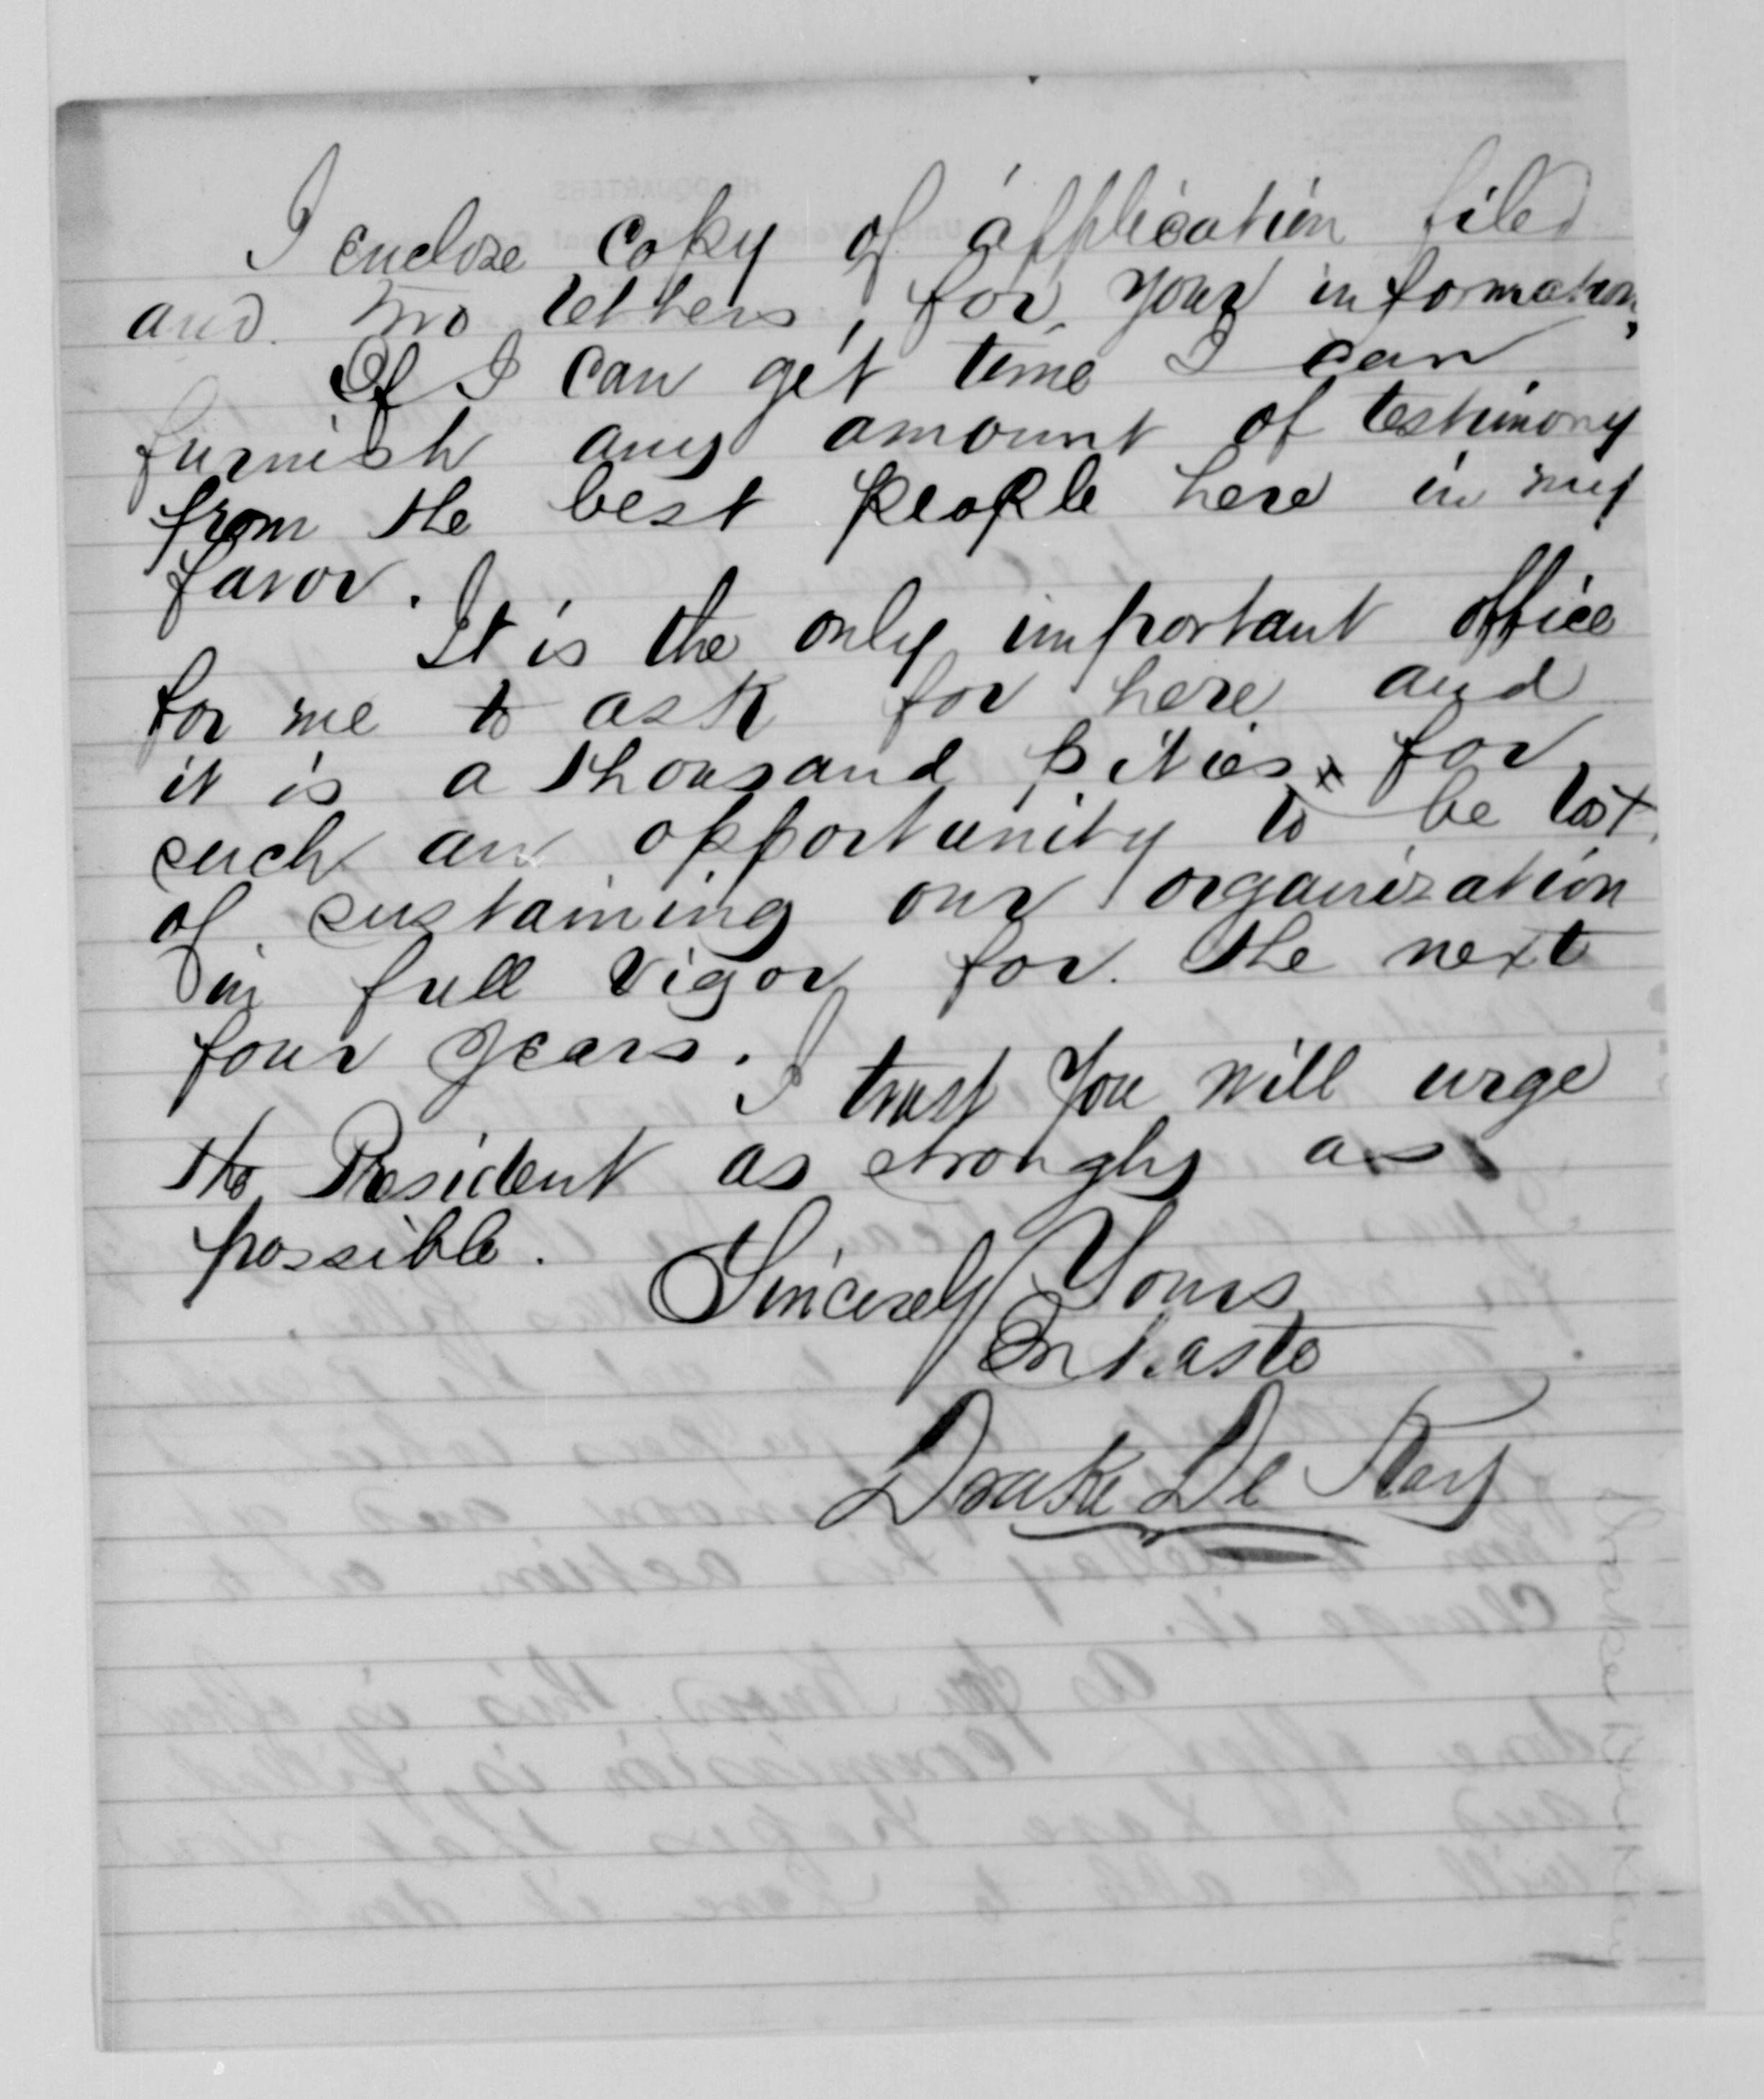 I enclose copy of application filed
and two letters, for your information,
If I can get time I can
furnish any amount of testimony
from the best people here in my
favor.
It is the only important office
for me to ask for here and
it is a thousand pities for
such an opportunity to be lost
of sustaining our organization
in full vigor for the next
four years.
I trust you will urge
the President as strongly as
possible.
Sincerely Yours
In haste
Drake De Kay